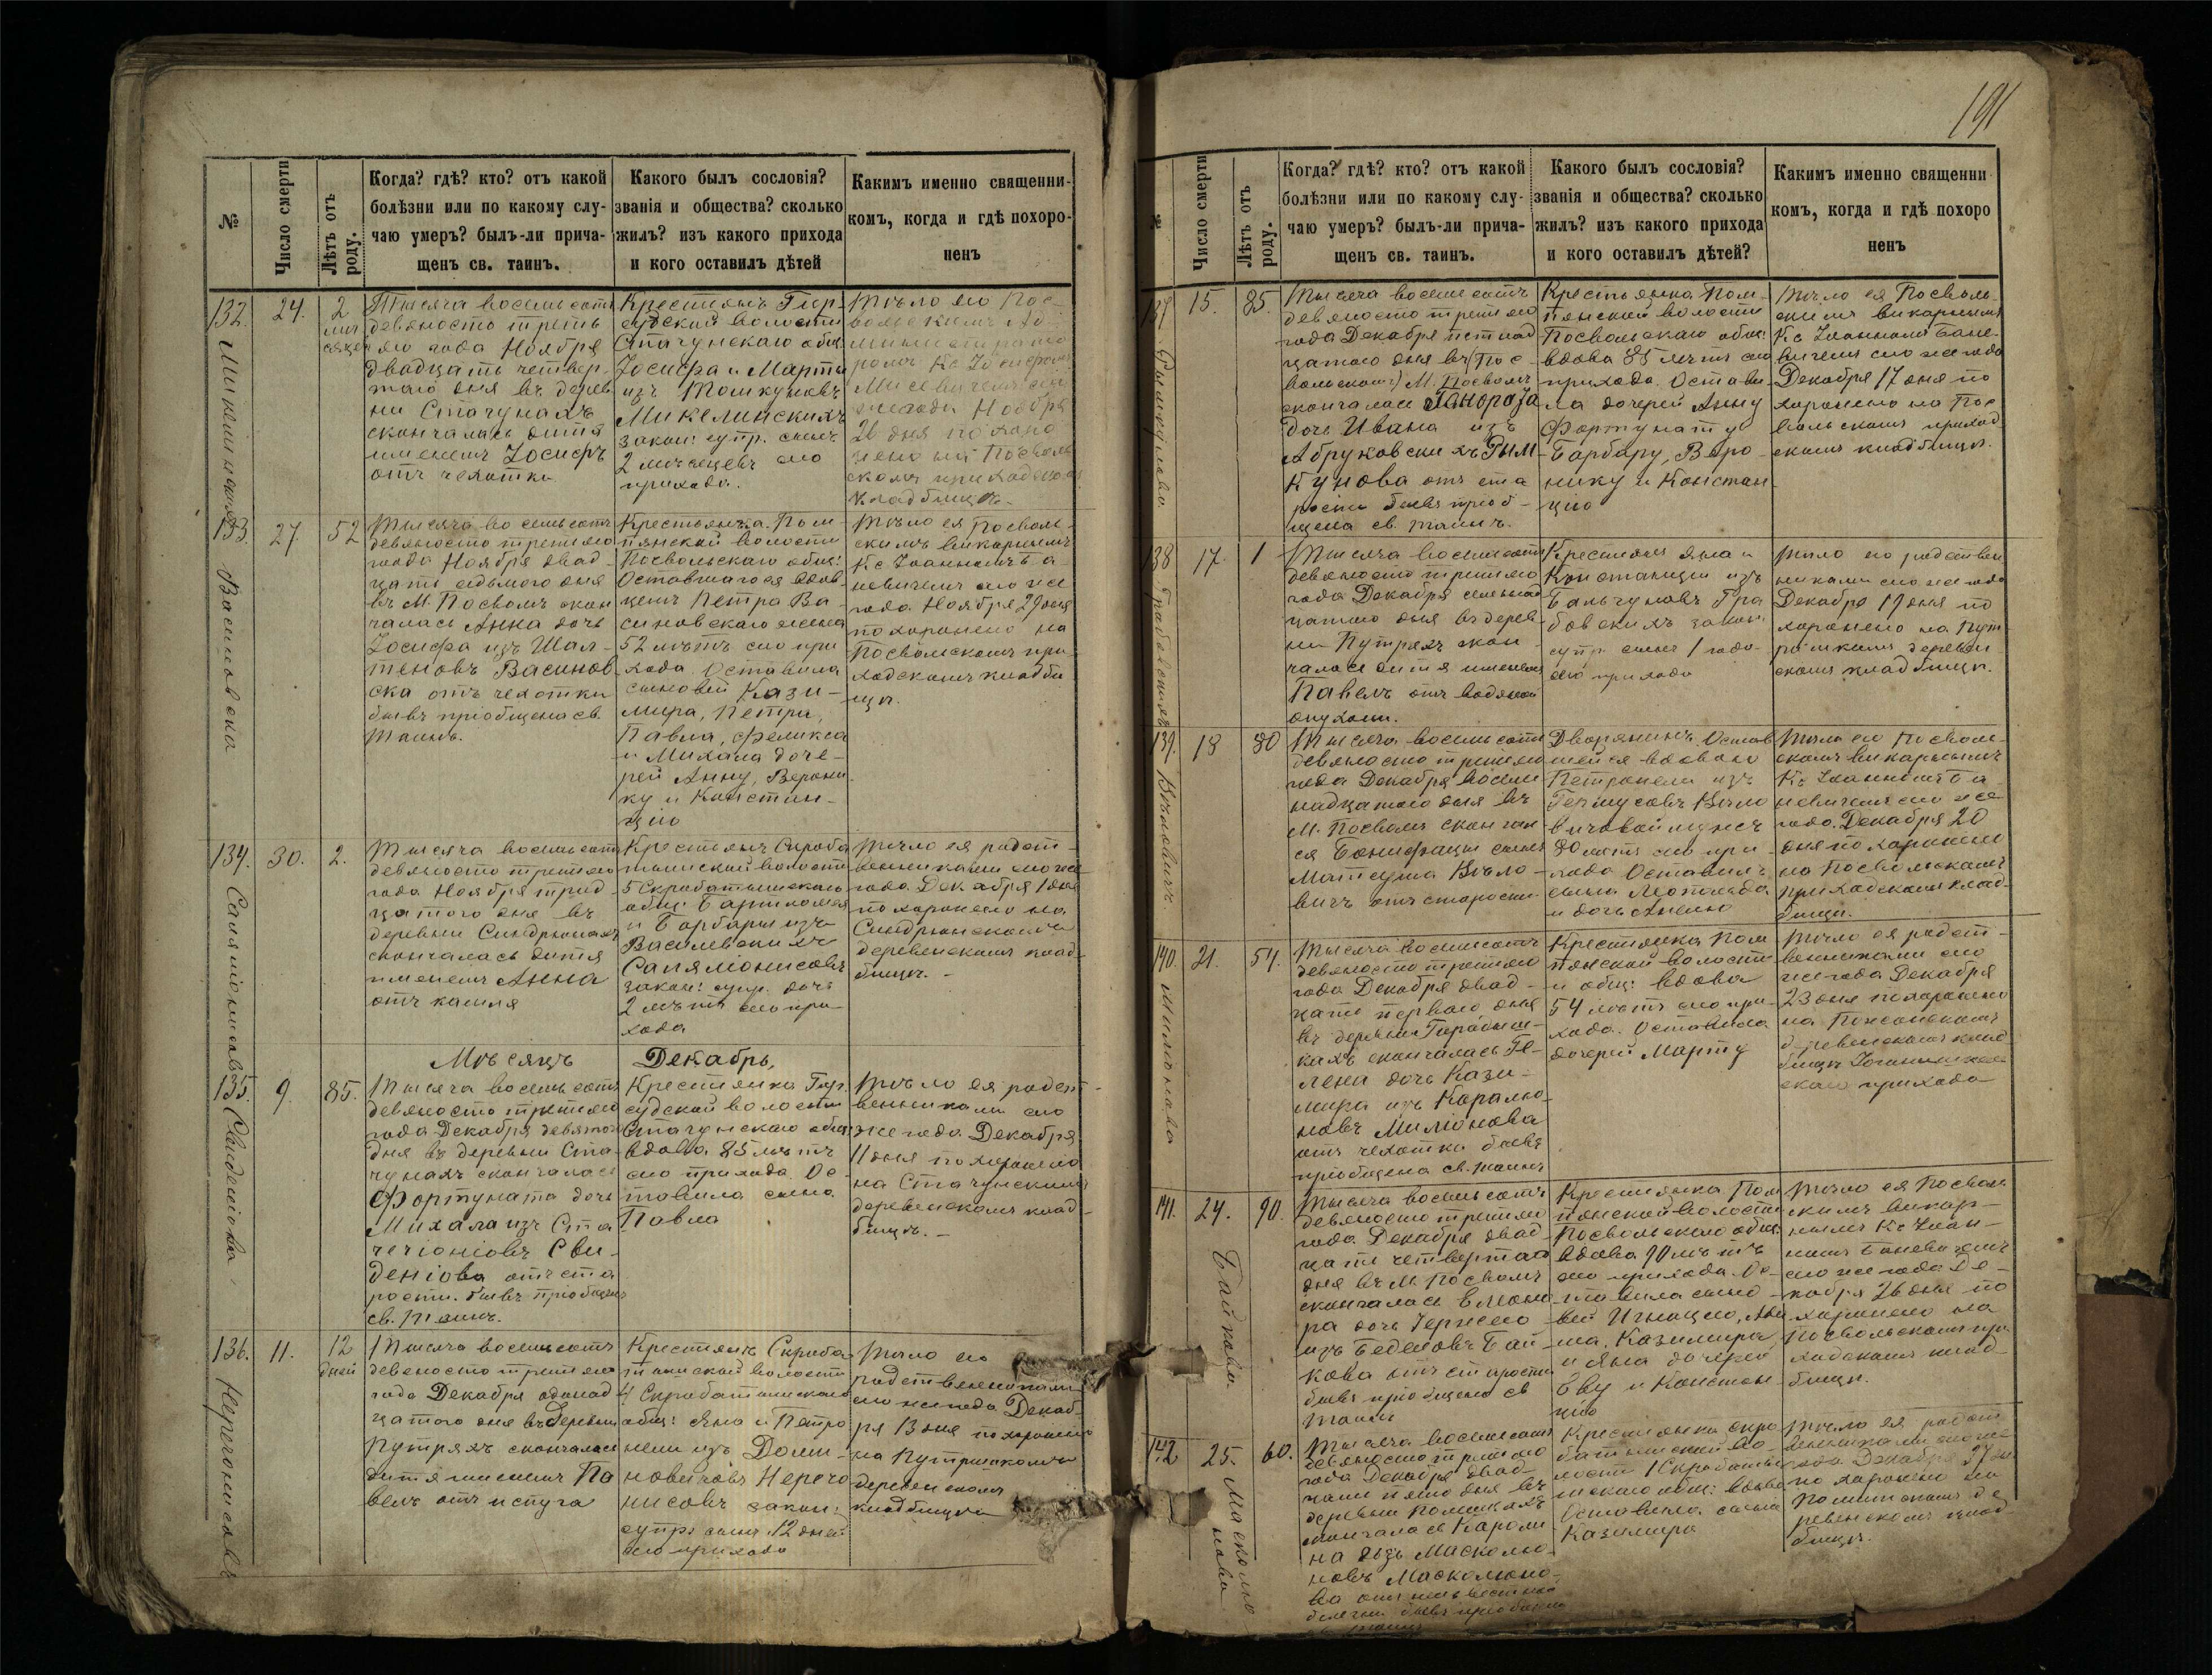 191
№
Число смерти
Лѣтъ отъ роду.
Когда? гдѣ? кто? отъ какой
болѣзни или по какому слу-
чаю умеръ? былъ-ли прича-
щенъ св. таинъ.
Какого былъ сословія?
званія и общества? сколько
жилъ? изъ какого прихода
и кого оставилъ дѣтей
Какимъ именно священни-
комъ, когда и гдѣ похоро-
ненъ
132.
24.
2
Тысяча восемьсотъ
девяносто треть
яго года Ноября
двадцать четвер-
таго дня въ дерев
ни Стачунахъ
скончалась дитя
именемъ Іосифъ
отъ чехотки
Крестьянъ Гир-
судской волости
Стачунскаго общ
Іосифа и Марты
изъ Тошкуновъ
Микелинскихъ
закон: супр. сынъ
2 мѣсяцевъ сего
прихода.
Тѣло его Пос-
вольскимъ Ад
министрато
ромъ Кс Іосифомъ
26 дня похоро
нено на Посволь
скомъ приходском
кладбищѣ.
133.
27.
52
Василовска
Тысяча восемьсотъ
девяносто третьяго
года Ноября двад-
цать седьмого дня
въ М. Посволѣ скон
чалась Анна дочь
Іосифа изъ Шал-
теновъ Васинов
ска отъ чехотки
бывъ пріобщена св.
Таинъ.
Крестьянка Пом-
пянской волости
Посвольскаго общ:
Оставшагося вдов-
цемъ Петра Ва-
синовскаго жена
52 лѣтъ сего при
хода Оставила
сыновей Кази-
мира, Петра,
Павла, Феликса
и Михала доче-
рей Анну, Верони
ку и Констан-
цію
Тѣло ея Посволь-
скимъ викарнымъ
Кс Іоанномъ Ба-
невичемъ сего же
года Ноября 29 дня
похоронено на
Посвольскомъ при
ходскомъ кладби
щѣ.
134.
30.
2.
Саляміонисовъ
Тысяча восемьсотъ
девяносто третьяго
года Ноября трид
цатого дня въ
деревни Синдрюнахъ
скончалась дитя
именемъ Анна
отъ кашля
Крестьянъ Скроба
тышской волости
5 Скробатышскаго
общ: Бартиломея
и Барбары изъ
Василевскихъ
Саляміонисовъ
закон: супр. дочь
2 лѣтъ сего при-
хода
Тѣло ея родст-
венниками сего же
года Декабря 1 дня
похоронено на
Синдрюнскомъ
деревенскомъ клад
бищѣ.
Мѣсяцъ Декабрь,
135.
9.
85.
Свиденіова
Тысяча восемьсотъ
девяносто третьяго
года Декабря девятого
дня въ деревни Ста-
чунахъ скончалась
Фортуната дочь
Михала изъ Ста
чегіоніовъ Сви-
деніова отъ ста
рости. бывъ пріобщена
св. Таинъ.
Крестьянка Гир-
судской волости
Стачунскаго общ:
вдова 85 лѣтъ
сего прихода Ос-
тавила сына
Павла
Тѣло ея родст-
венниками сего
же года Декабря
11 дня похоронено
на Стачунскомъ
деревенскомъ клад-
бищѣ.
136.
11.
12
дней
Неречонисовъ
Тысяча восемьсотъ
девяносто третьяго
года Декабря одинад
цатого дня въ деревни
Путряхъ скончалась
дитя именемъ Па
велъ отъ испуга
Крестьянъ Скроба-
тышской волости
4 Скробатышскаго
общ: Яна и Петро
нели изъ Доми-
новичовъ Неречо
нисовъ закон:
супр: сынъ 12 дней
сего прихода
Тѣло его
родственниками
сего же года Декаб-
ря 13 дня похоронено
на Путришкомъ
деревенскомъ
кладбищѣ
№
Число смерти
Лѣтъ отъ роду.
Когда? гдѣ? кто? отъ какой
болѣзни или по какому слу-
чаю умеръ? былъ-ли прича-
щенъ св. таинъ.
Какого былъ сословія?
званія и общества? сколько
жилъ? изъ какого прихода
и кого оставилъ дѣтей?
Какимъ именно священни
комъ, когда и гдѣ похоро
ненъ
137
15.
85.
Рымкунова.
Тысяча восемьсотъ
девяносто третьяго
года Декабря пятнад
цатого дня въ (Пос-
вольскомъ) М. Посволѣ
скончалась
дочь Ивана изъ
Абруковскихъ Рым
Кунова отъ ста
рости бывъ пріоб-
щена св. таинъ.
Крестьянка Пом-
пянской волости
Посвольскаго общ:
вдова 85 лѣтъ сего
прихода. Остави
ла дочерей Анну
Фортунату
Барбару, Веро-
нику и Констан
цію
Тѣло ея Посволь-
скимъ викарнымъ
Кс Іоанномъ Бане-
вичемъ сего же года
Декабря 17 дня по
хоронено на Пос
вольскомъ приход
скомъ кладбищѣ.
138
17.
1
Грабовскихъ
Тысяча восемьсотъ
девяносто третьяго
года Декабря семнад
цатого дня въ дерев
ни Путряхъ скон
чалась дитя именемъ
Павелъ отъ водяной
опухоли.
Крестьянъ Яна и
Констанціи изъ
Бальчуновъ Гра
бовскихъ закон:
супр. сынъ 1 года
сего прихода
Тѣло его родствен
никами сего же года
Декабря 19 дня по
хоронено на Пут
ришкомъ деревен
скомъ кладбищѣ.
139.
18
80
Воиловичъ.
Тысяча восемьсотъ
девяносто третьяго
года Декабря восем
надцатого дня въ
М. Посволѣ скончал
ся Бонифацій сынъ
Матеуша Воило-
вичъ отъ старости
Дворянинъ Остав
шейся вдовою
Петронели изъ
80 лѣтъ сего при
хода Оставилъ
сына Леопольда
и дочь Анелю
Тѣло его Посволь-
скимъ викарнымъ
Кс Іоанномъ Ба
невичемъ сего же
года Декабря 20
дня похоронено
на Посвольскомъ
приходскомъ клад-
бищѣ.
140.
21.
54.
Миліонова
Тысяча восемьсотъ
девяносто третьяго
года Декабря двад-
цать перваго дня
кахъ скончалась Ге-
лена дочь Кази-
мира изъ Каралю-
новъ Миліонова
отъ чехотки бывъ
пріобщена св. таинъ
Крестьянка Пом
пянской волости
и общ: вдова
54 лѣтъ сего при-
хода. Оставила
дочерей Марту
Тѣло ея родст-
венниками сего
же года Декабря
23 дня похоронено
деревенскомъ клад
бищѣ
скаго прихода
141.
24.
90.
Байкова.
Тысяча восемьсотъ
девяносто третьяго
года Декабря двад
цать четвертаго
дня въ М. Посволѣ
скончалась Елеоно
ра дочь
изъ Беделовъ Бай
кова отъ старости
бывъ пріобщена св
таинъ
Крестьянка Пом
пянской волости
Посвольскаго общ:
вдова 90 лѣтъ
сего прихода. Ос-
тавила сыно-
вей Игнацаго,
Казимира
и Яна дочерей
Еву и Констан-
цію
Тѣло ея Посволь
скимъ викар-
нымъ Кс Іоан-
номъ Баневичемъ
сего же года Де-
кабря 26 дня по
хоронено на
Посвольскомъ при
ходскомъ клад-
бищѣ.
142
25.
60.
Тысяча восемьсотъ
девяносто третьяго
года Декабря двад-
цать пятаго дня въ
деревни
скончалась Кароли
на изъ Масколю-
новъ Масколюно-
ва отъ неизвестной
болезни бывъ пріобщена
Крестьянка Скро
батышской во-
лости 1 Скробатыш
скаго общ: вдова
Оставила сына
Казимира
Тѣло ея родст
венниками сего же
года Декабря 27 дня
похоронено на
де
ревенскомъ клад-
бищѣ.